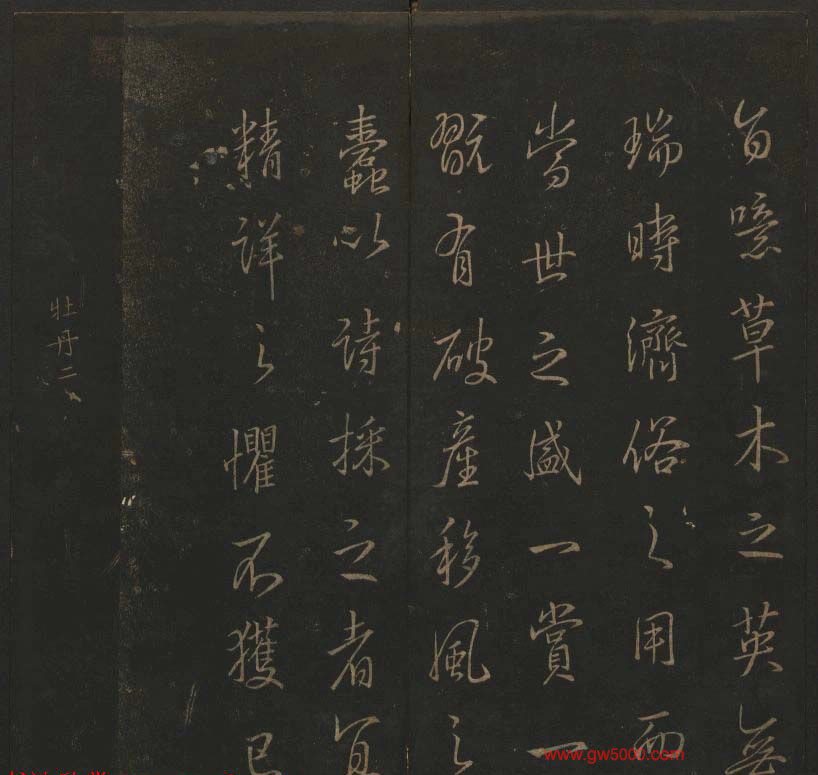 旨噫草木之英無
瑞時濟俗之用而
當世之盛一賞一
翫有破產移風之
蠹以詩採之者眞
精詳之懼不獲已
牡丹二
www.gw5000.com